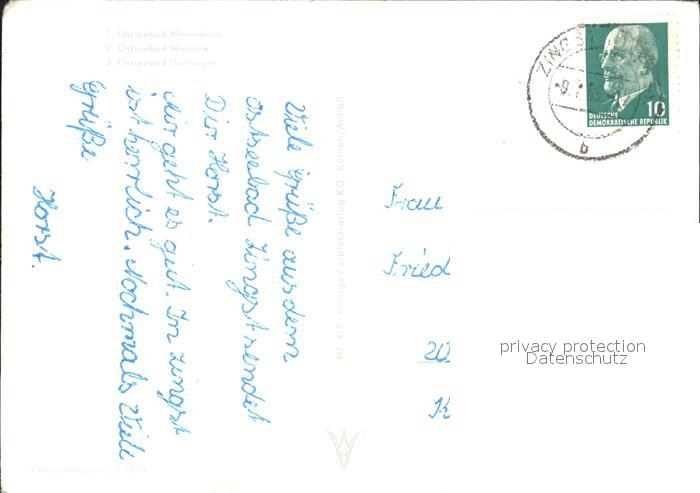 1. Ostseebad Ahrenshoop
2. Ostseebad Wustrow
3. Ostseebad Dierhagen
Viele Grüße aus dem
Ostseebad Zingst sendet
Dir Horst.
Mir geht es gut. In Zingst
ist herrlich. Nochmals Viele
Grüße
Horst.
MF 415 Heldge-Farbfotoverlag KG Köthen/Anhalt
ZINGST
b
10
DEUTSCHE
DEMOKRATISCHE REPUBLIK
Frau
Fried
20
K
privacy protection
Datenschutz